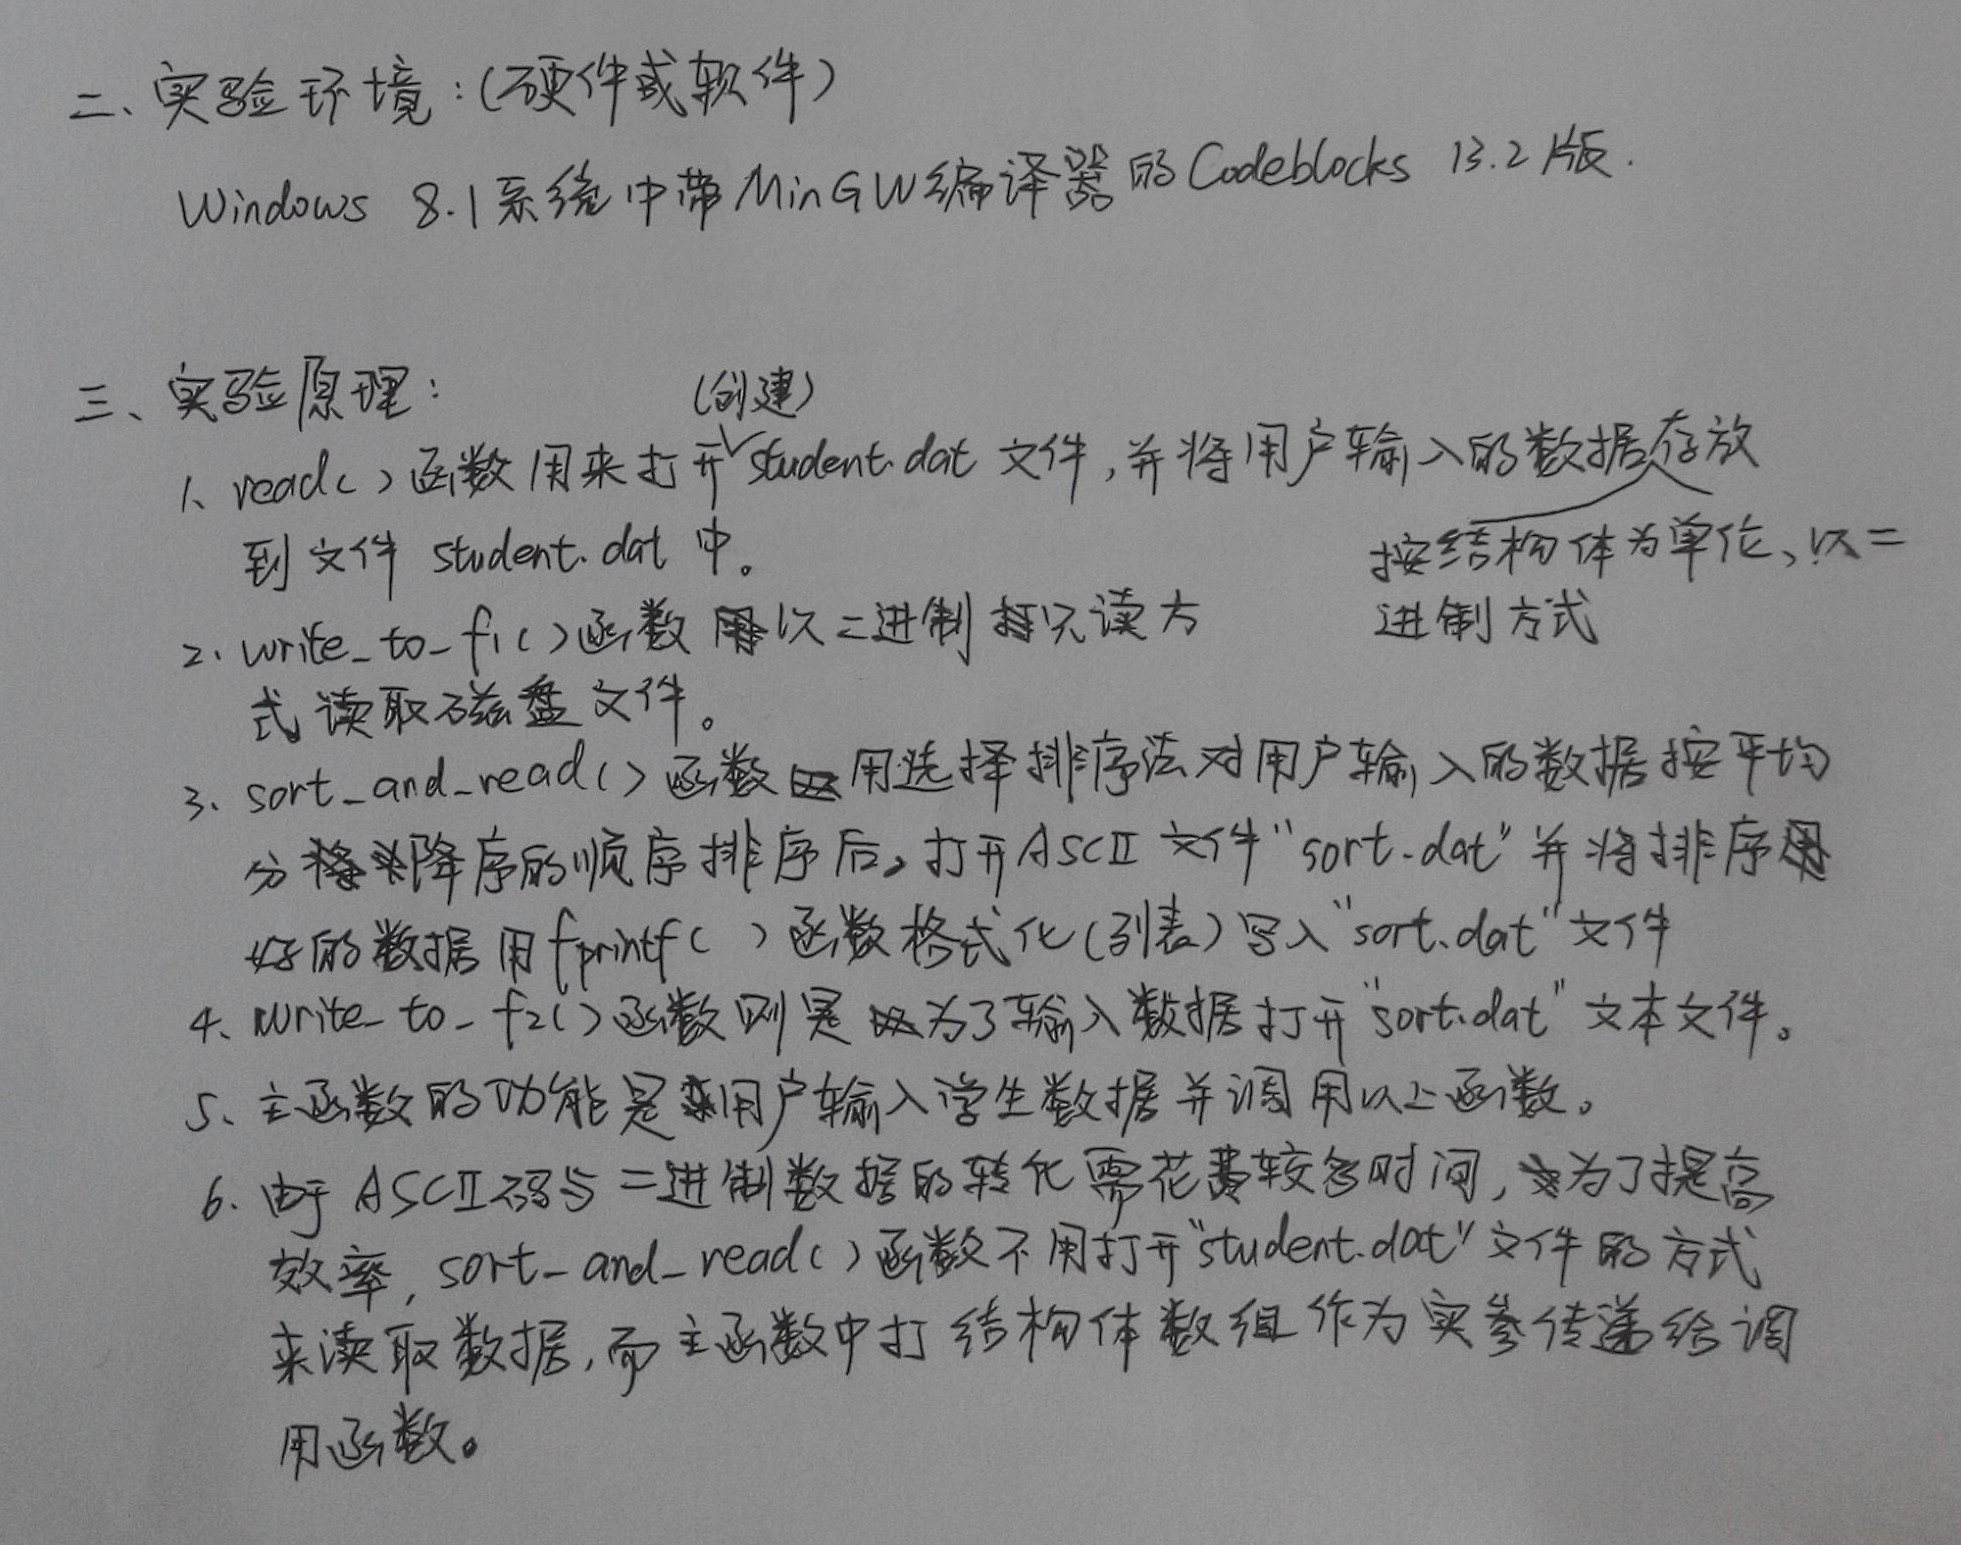 二、实验环境:(硬件或软件)
Windows 8.1系统中带MinGW编译器的Codeblocks 13.2版.
三、实验原理:
(创建)
1、read()函数用来打开student.dat文件,并将用户输入的数据存放
按结构体为单位、以二
进制方式
到文件 student.dat 中。
2. write_to_f1()函数以二进制只读方
式读取磁盘文件。
3、sort_and_read()函数用选择排序法对用户输入的数据按平均
分降序的顺序排序后,打开ASCII文件"sort.dat"并将排序
好的数据用fprintf( )函数格式化(列表)写入"sort.dat"文件
4、write_to_f2()函数则是为了输入数据打开"sort.dat"文本文件。
5、主函数的功能是用户输入学生数据并调用以上函数。
6. 由于ASCII码与二进制数据的转化需花费较多时间,为了提高
效率,sort_and_read()函数不用打开"student.dat"文件的方式
来读取数据,而主函数中打结构体数组作为实参传递给调
用函数。